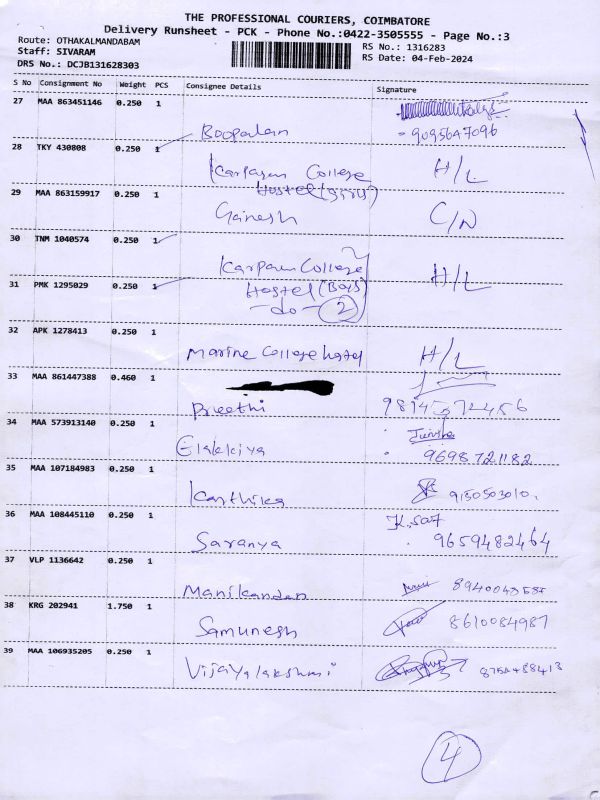 THE PROFESSIONAL COURIERS, COIMBATORE
Delivery Runsheet - PCK - Phone No.:0422-3505555 - Page No.:3
Route: OTHAKALMANDABAM
RS No.: 1316283
Staff: SIVARAM
RS Date: 04-Feb-2024
DRS No.: DCJB131628303
S No Consignment No Weight PCS Consignee Details Signature
27 MAA 863451146 0.250 1
Boopalan 9095647096
28 TKY 430808 0.250 1
Karpagam College H/L
Hostel (Girls)
29 MAA 863159917 0.250 1
Ganesh C/N
30 TNM 1040574 0.250 1
Karpam College H/L
31 PMK 1295029 0.250 1
Hostel (Boys)
-do- 2
32 APK 1278413 0.250 1
Marine College hostel H/L
33 MAA 861447388 0.460 1
Preethi
34 MAA 573913140 0.250 1
Elakkiya 9698721182
35 MAA 107184983 0.250 1
Karthika 9150503010.
36 MAA 108445110 0.250 1
Saranya 9659482464
37 VLP 1136642 0.250 1
Manikandan
38 KRG 202941 1.750 1
Samunesh 8610084987
39 MAA 106935205 0.250 1
Vijayalakshmi
4